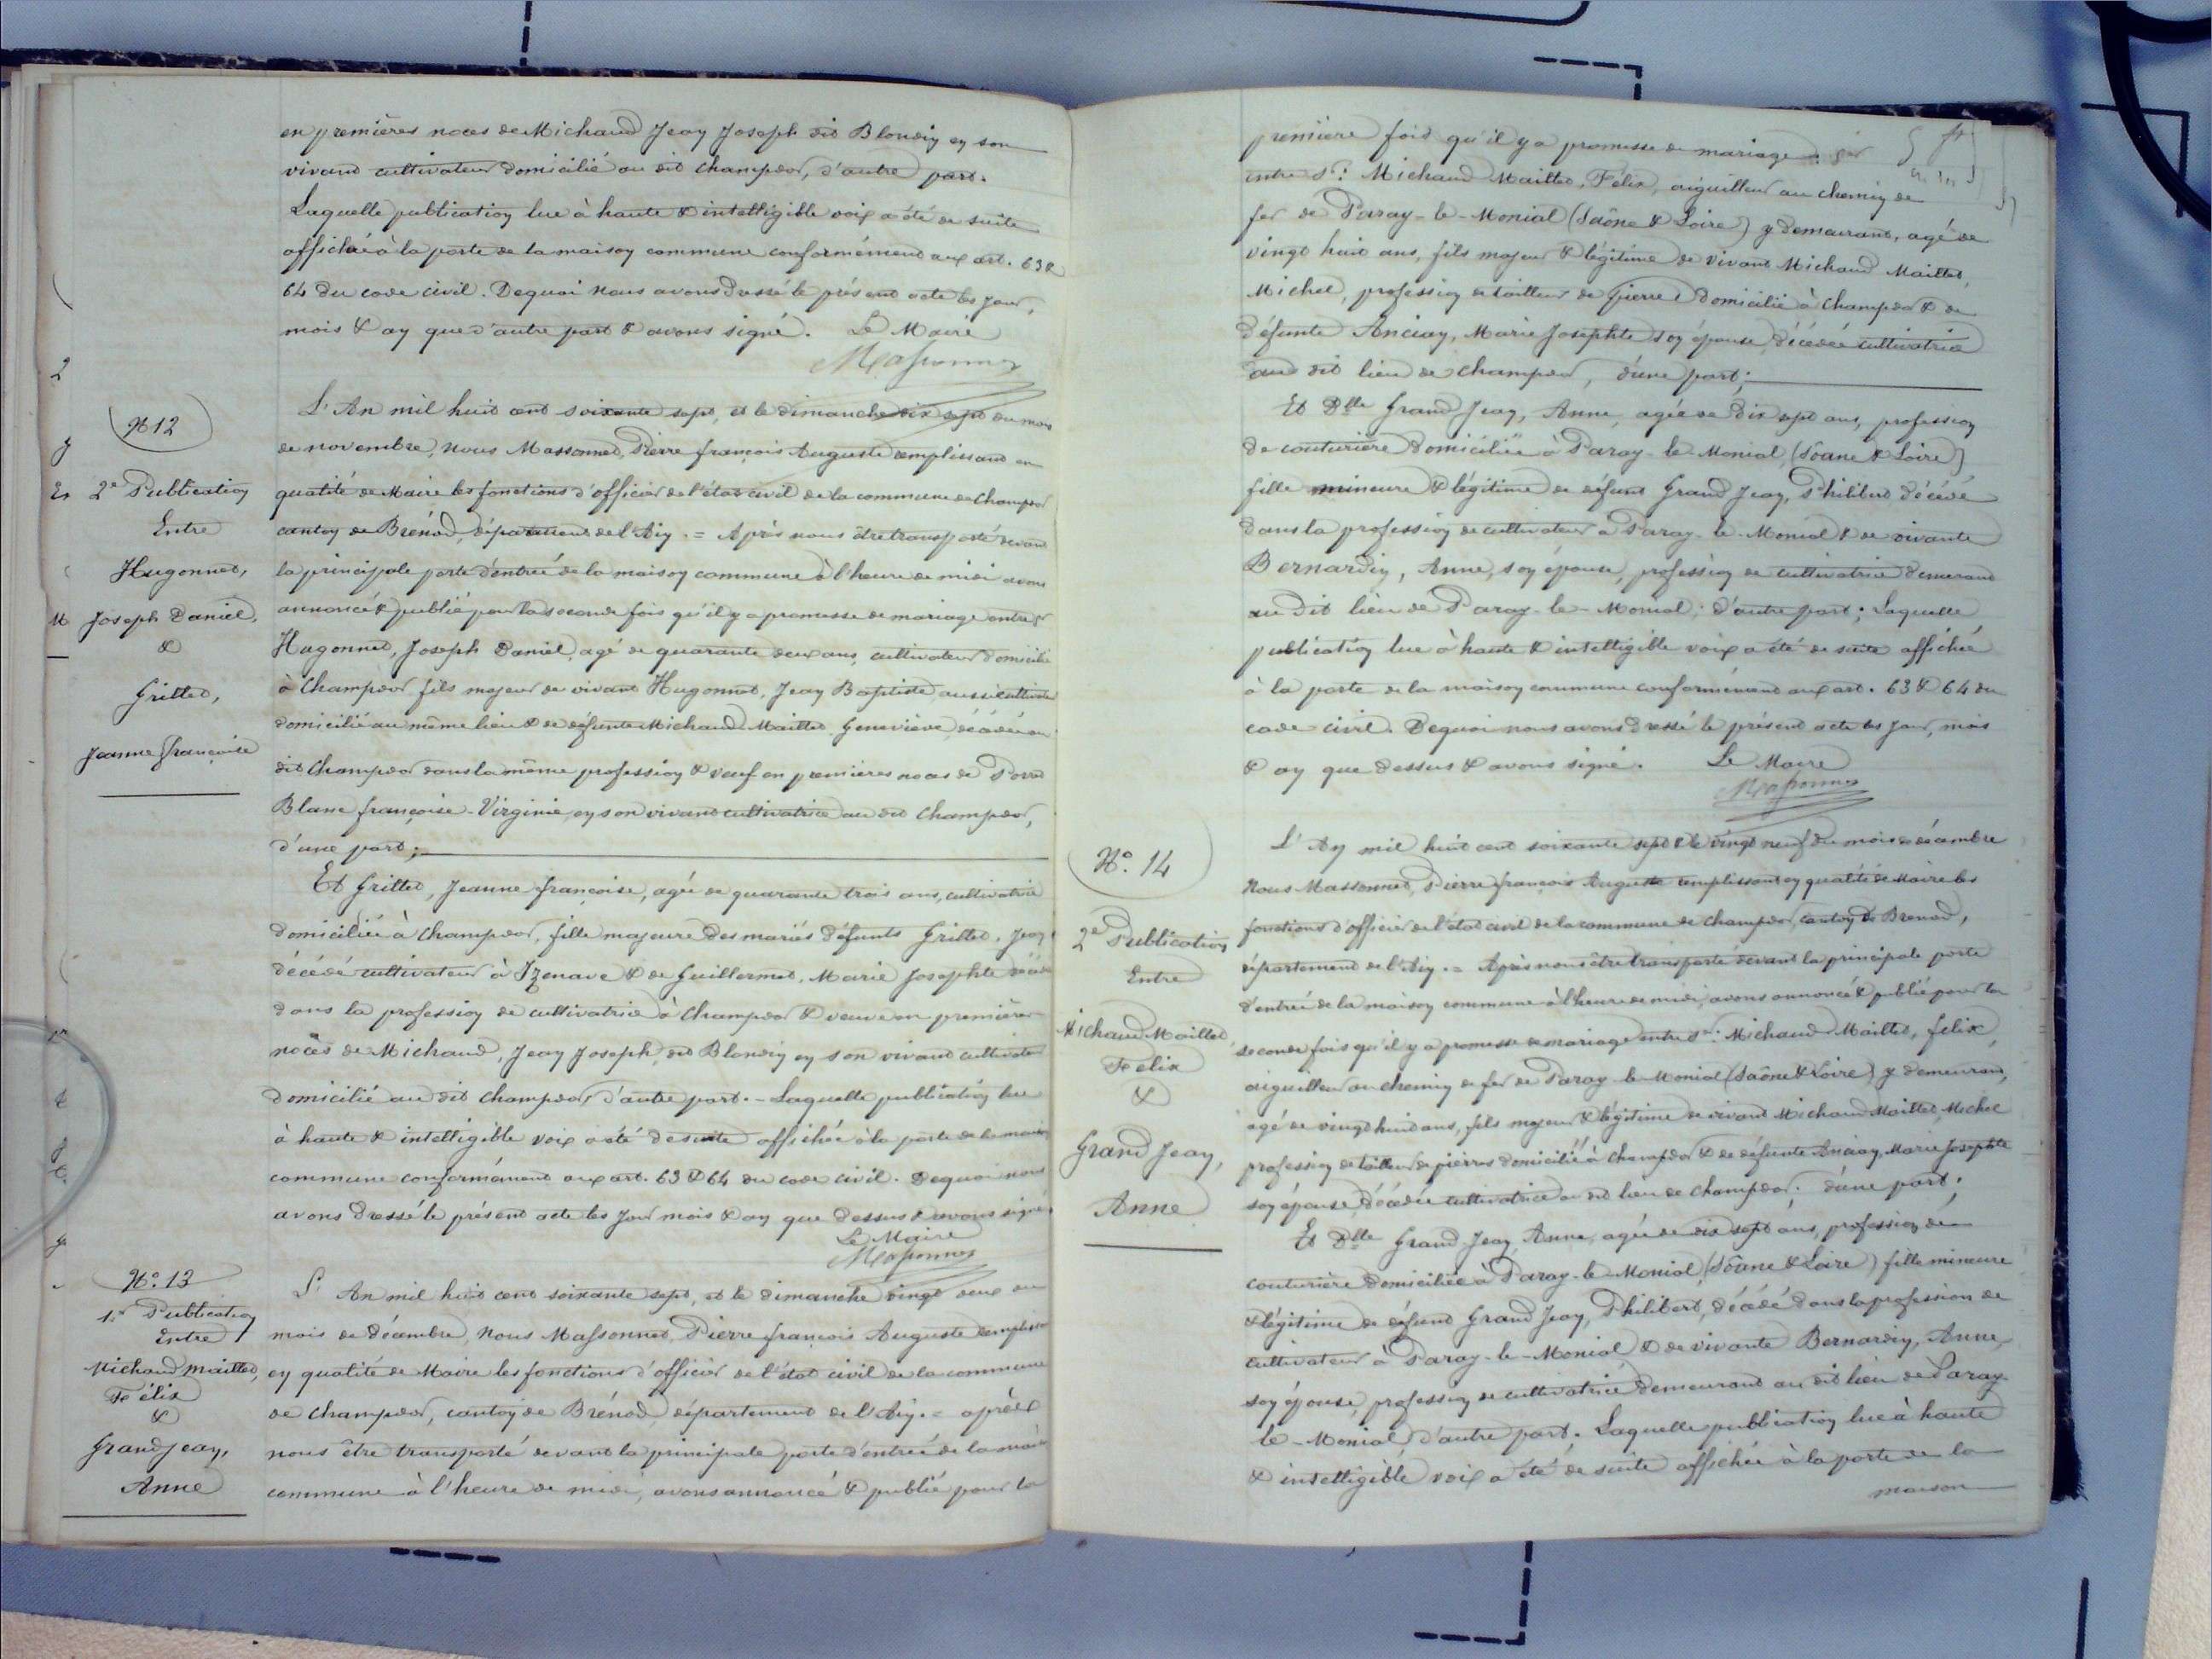 en premières noces de Michaud Jean Joseph dit Blondin en son
vivant cultivateur domicilié au dit Champdor, d'autre part.
Laquelle publication lue à haute & intelligible voix a été de suite
affichée à la porte de la maison commune conformément aux art. 63 &
64 du code civil. Dequoi nous avons dressé le présent acte les jour,
mois & an que d'autre part & avons signé. Le Maire
Massonnet
N 12
2e Publication
Entre
Hugonnet,
Joseph Daniel,
&
Grillet,
Jeanne françoise
L'An mil huit cent soixante sept, et le dimanche dix sept du mois
de novembre, nous Massonnet, Pierre françois Auguste remplissant en
qualité de Maire les fonctions d'officier de l'état civil de la commune de Champdor
canton de Brénod, département de l'Ain. = Après nous être transporté devant
la principale porte d'entrée de la maison commune à l'heure de midi avons
annoncé & publié pour la seconde fois qu'il y a promesse de mariage entre
Hugonnet, Joseph Daniel, agé de quarante deux ans, cultivateur domicilié
à Champdor, fils majeur de vivant Hugonnet, Jean Baptiste, aussi cultivateur
domicilié au même lieu & de défunte Michaud Maillet Geneviève décédée au
dit Champdor dans la même profession & veuf en premières noces de
Blanc françoise-Virginie, en son vivant cultivatrice au dit Champdor,
d'une part;
Et Grillet, Jeanne françoise, agée de quarante trois ans, cultivatrice
domiciliée à Champdor, fille majeure des mariés défunts Grillet, Jean
décédé cultivateur à Izenave & de Guillermet, Marie Josephte décédée
dans la profession de cultivatrice à Champdor & veuve en premières
noces de Michaud, Jean Joseph, dit Blondin en son vivant cultivateur
domicilié au dit Champdor, d'autre part. - Laquelle publication lue
à haute & intelligible voix a été de suite affichée à la porte de la maison
commune conformément aux art. 63 & 64 du code civil. Dequoi nous
avons dressé le présent acte les jour mois & an que dessus & avons signé.
Le Maire
Massonnet
No. 13
1re Publication
Entre
Michaud Maillet,
Félix
&
Grand Jean,
Anne
L'An mil huit cent soixante sept, et le dimanche vingt deux du
mois de décembre, nous Massonnet, Pierre françois Auguste remplissant
en qualité de Maire les fonctions d'officier de l'état civil de la commune
de Champdor, canton de Brénod, département de l'Ain. = après
nous être transporté devant la principale porte d'entrée de la maison
commune à l'heure de midi, avons annoncé & publié pour la
première fois qu'il y a promesse de mariage
entre sr: Michaud Maillet, Félix, aiguilleur au chemin de
fer de Paray-le-Monial (Saône & Loire) y demeurant, agé de
vingt huit ans, fils majeur & légitime de vivant Michaud Maillet,
Michel, profession de tailleur de pierres domicilié à Champdor & de
défunte Ancian, Marie Josephte son épouse, décédée cultivatrice
au dit lieu de Champdor, d'une part;
Et Dlle Grand Jean, Anne, agée de dix sept ans, profession
de couturière domiciliée à Paray-le-Monial, (Sôane & Loire)
fille mineure & légitime de défunt Grand Jean, Philibert décédé
dans la profession de cultivateur à Paray-le-Monial & de vivante
Bernardin, Anne, son épouse, profession de cultivatrice demeurant
au dit lieu de Paray-le-Monial; d'autre part; Laquelle
publication lue à haute & intelligible voix a été de suite affichée
à la porte de la maison commune conformément aux art. 63 & 64 du
code civil. Dequoi nous avons dressé le présent acte les jour, mois
& an que dessus & avons signé. Le Maire
Massonnet
No. 14
2e Publication
Entre
Michaud Maillet,
Felix
&
Grand Jean,
Anne
L'An mil huit cent soixante sept & le vingt neuf du mois de décembre
Nous Massonnet, Pierre françois Auguste remplissant en qualité de Maire les
fonctions d'officier de l'état civil de la commune de Champdor, canton de Brenod,
département de l'Ain. = Après nous être transporté devant la principale porte
d'entrée de la maison commune à l'heure de midi, avons annoncé & publié pour la
seconde fois qu'il y a promesse de mariage entre sr: Michaud Maillet, felix,
aiguilleur au chemin de fer de Paray-le-Monial (Saône & Loire) y demeurant,
agé de vingt huit ans, fils majeur & légitime de vivant Michaud Maillet, Michel
profession de tailleur de pierres domicilié à Champdor & de défunte Ancian, Marie Josephte
son épouse, décédée cultivatrice au dit lieu de Champdor; d'une part;
Et Dlle Grand Jean, Anne, agée de dix sept ans, profession de
couturière domiciliée à Paray-le-Monial (Sôane & Loire) fille mineure
& légitime de défunt Grand Jean, Philibert, décédé dans la profession de
cultivateur à Paray-le-Monial & de vivante Bernardin, Anne,
son épouse, profession de cultivatrice demeurant au dit lieu de Paray-
le-Monial d'autre part. Laquelle publication lue à haute
& intelligible voix a été de suite affichée à la porte de la
maison